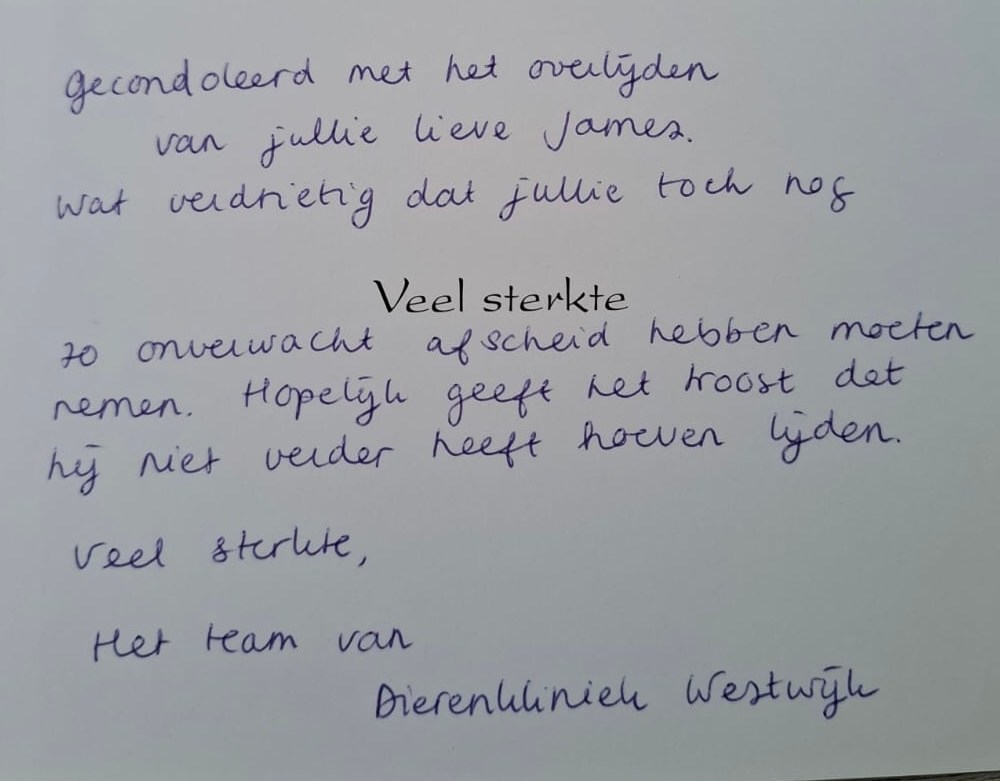 Gecondoleerd met het overlijden
van jullie lieve James.
Wat verdrietig dat jullie toch nog
Veel sterkte
zo onverwacht afscheid hebben moeten
nemen. Hopelijk geeft het troost dat
hij niet verder heeft hoeven lijden.
Veel sterkte,
Het team van
Dierenkliniek Westwijk